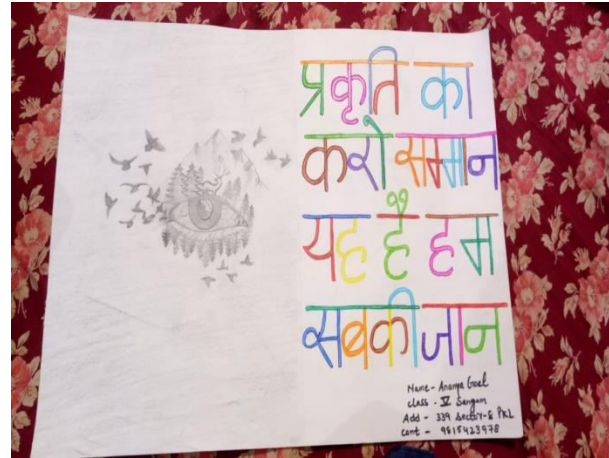 प्रकृति का
करो सम्मान
यह है हम
सबकी जान
Name - Ananya Goel
class - V Sangam
Add - 339 Sector-8 PKL
Cont - 9815423978